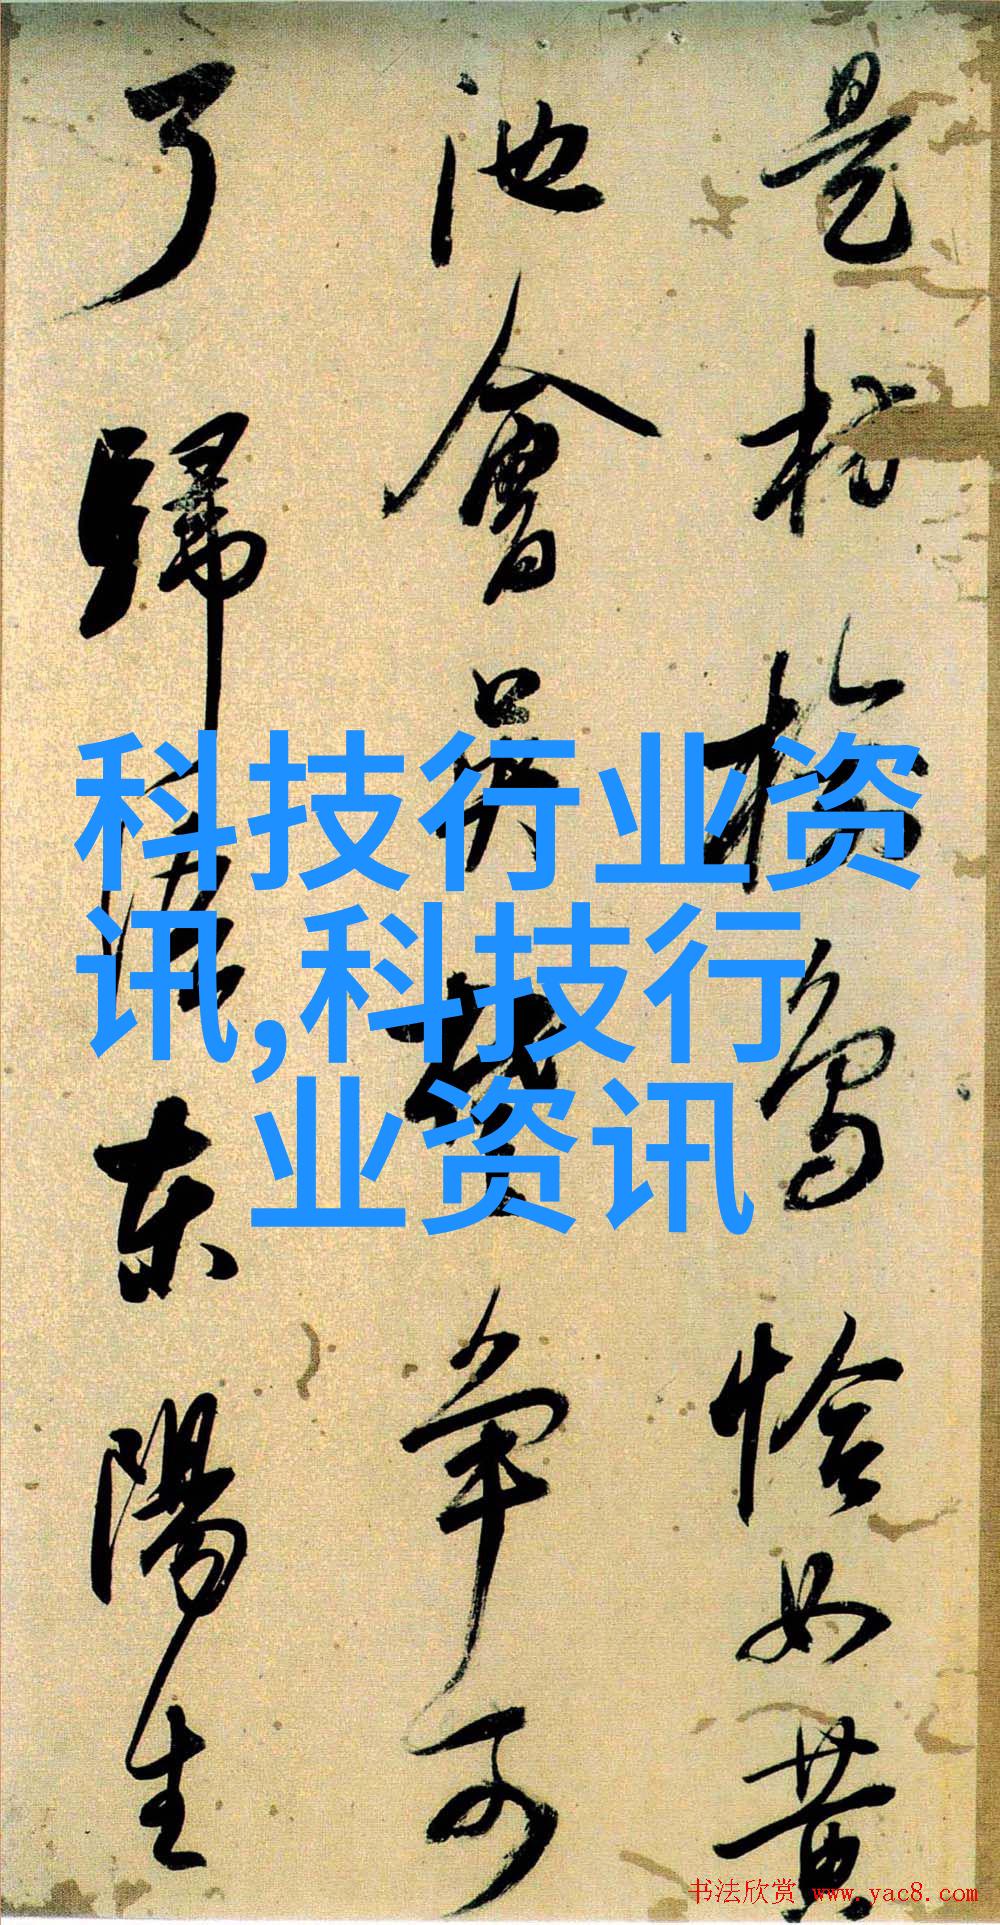 是枋榆鳥恰如黃
池會吳楚爭可
了歸語東陽生
科技行业资
讯,科技行
业资讯
书法欣赏 www.yac8.com